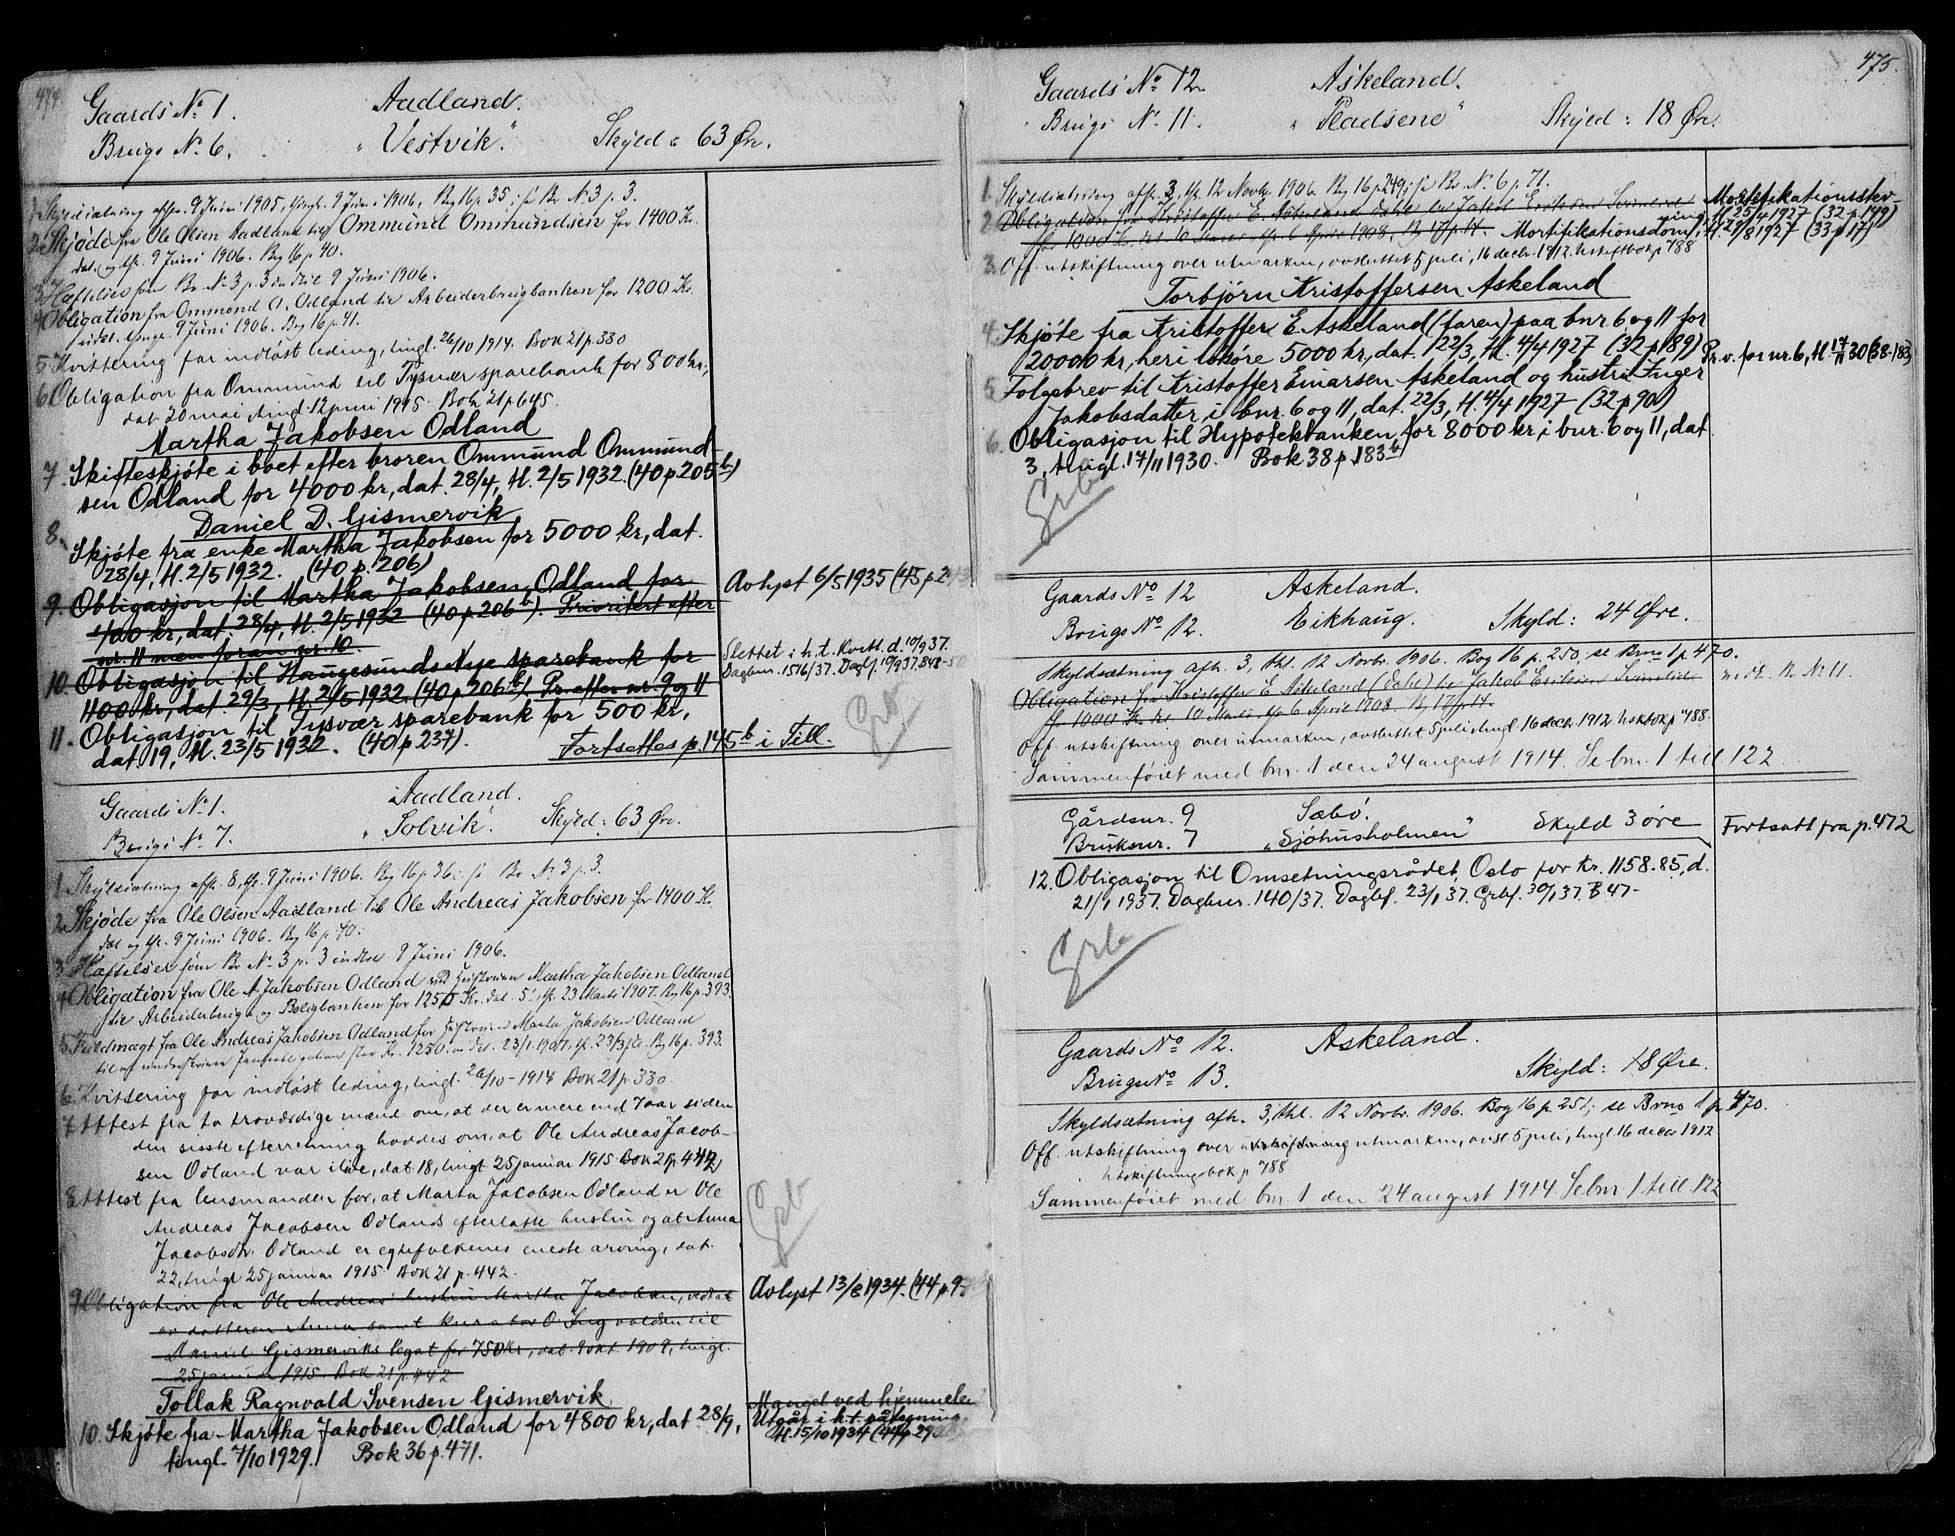 474
Gaards No 1. Aadland.
Brugs No 6. „Vestvik“. Skyld: 63 Øre.
1. Skyldsætning afh. 9 Juni 1905, thingl. 9 Juni 1906. Bog 16 p. 35; se Br. No 3 p. 3.
2. Skjøde fra Ole Olsen Aadland til Ommund Ommundsen for 1400 Kr.
dat. og thl. 9 Juni 1906. Bog 16 p. 40.
3. Hæftelser som Br. No 3 p. 3 indtil 9 Juni 1906.
4. Obligation fra Ommond O. Odland til Arbeiderbrugbanken for 1200 Kr.
udat. thingl. 9 Juni 1906. Bog 16 p. 41.
5. Kvittering for indløst leding, tingl. 26/10 1914. Bok 21 p. 330
6. Obligation fra Ommund til Tysvær sparebank for 800 kr.,
dat. 20 mai tingl. 12 juni 1915. Bok 21 p 645.
Martha Jakobsen Odland
7. Skifteskjøte i boet efter broren Ommund Ommund-
sen Odland for 4000 kr, dat. 28/4, tl. 2/5 1932. (40 p 205b)
Daniel D. Gismervik
8. Skjøte fra enke Martha Jakobsen for 5000 kr, dat.
28/4, tl. 2/5 1932. (40 p. 206)
9. Obligasjon til Martha Jakobsen Odland for Avlyst 6/5 1935 (45 p 2
kr, dat. 28/4, tl. 2/5 1932 (40 p 206b). Prioritert efter
nr. 11 men foran nr. 10.
10. Obligasjon til Haugesunds Nye sparebank for Slettet i h.t. kvitt. d. 10/9 37.
1100 kr, dat. 29/3, tl. 2/5 1932 (40 p 206b) Pr. efter nr. 9 og 11 Dagbnr. 1516/37. Dagbf. 10/9 37. 848-50
11. Obligasjon til Tysvær sparebank for 500 kr,
dat. 19, tl. 23/5 1932. (40 p 237). Fortsettes p. 145b i Till.
Grb
Gaards No 1. Aadland.
Brugs No 7. „Solvik“. Skyld: 63 Øre.
1. Skyldsætning afh. 8, thl. 9 Juni 1906. Bog 16 p. 36; se Br. No 3 p. 3.
2. Skjøde fra Ole Olsen Aadland til Ole Andreas Jakobsen for 1400 Kr.
dat. og thl. 9 Juni 1906. Bog 16 p. 40.
3. Hæftelser som Br. No 3 p. 3 indtil 9 Juni 1906.
4. Obligation fra Ole A. Jakobsen Odland ved Hustruen Martha Jakobsen Odland
til Arbeiderbrug og Boligbanken for 1250 Kr. dat. 5, thl. 23 Marts 1907. Bog 16 p. 393.
5. Fuldmagt fra Ole Andreas Jakobsen Odland for Hustruen Marta Jakobsen Odland
til at underskrive Panteobligation stor Kr. 1250. dat. 23/1 1907, thl. 23/3 Bog 16 p. 393.
6. Kvittering for indløst leding, tingl. 26/10 - 1914 Bok 21 p. 330
7. Attest fra to troværdige mænd om, at der er mere end 7 aar siden
den sisste efterretning haddes om, at Ole Andreas Jacob-
sen Odland var ilive, dat. 18, tingl 25 januar 1915 Bok 21 p. 442
8. Attest fra lensmanden for, at Marta Jacobsen Odland er Ole
Andreas Jacobsen Odlands efterlatte hustru og at Anna
Jacobsdtr. Odland er egtefolkenes eneste arving, dat.
22, tingl 25 januar 1915 Bok 21 p. 442.
Grb
9. Obligation fra Ole Andreas hustru Martha Jacobsen, Avlyst 13/8 1934. (44 p. 9
av datteren Anna samt kurator O. Ingvaldsen til
Daniel Gismerviks legat for 750 kr, dat. 9 okt. 1909, tingl.
25 januar 1915. Bok 21 p. 442
Tollak Ragnvald Svensen Gismervik
10. Skjøte fra Martha Jakobsen Odland for 4800 kr, dat 28/9,
tingl. 7/10 1929. Bok 36 p. 471.
Mangel ved hjemmelen
Utgår i h.t. påtegning
tl. 15/10 1934 (44 p 29
475.
Gaards No 12 Askeland.
Brugs No 11. „Pladsene“ Skyld: 18 Øre.
1. Skyldsætning afh. 3, thl. 12 Novbr. 1906. Bog 16 p 249; se Br. No 6 p. 71.
2. Obligation fra Kristoffer E. Askeland til Jakob Eriksen
for 1000 Kr., dat. 10 Marts, thl. 6 April 1908. Bog 17 p. 14. Mortifikationsdom, tl. 29/8 1927 (33 p 17)
Mortifikationsstev-
ning, tl 25/4 1927 (32 p 149)
3. Off. utskiftning over utmarken, avsluttet 5 juli, 16 decbr. 1912. Utskiftbok p 788
Torbjörn Kristoffersen Askeland
4. Skjøte fra Kristoffer E. Askeland (faren) paa bnr. 6 og 11 for
20000 kr, heri løsöre 5000 kr, dat. 22/3, tl. 4/4 1927 (32 p 89) Pr. v. for nr 6, tl 17/11 30 (38-183)
5. Folgebrev til Kristoffer Einarsen Askeland og hustru Inger
Jakobsdatter i bnr. 6 og 11, dat. 22/3, tl. 4/4 1927 (32 p 90)
6. Obligasjon til Hypotekbanken for 8000 kr, i bnr. 6 og 11, dat
3, tingl. 17/11 1930. Bok 38 p. 183b
Grb
Gaards No 12 Askeland.
Brugs No 12. Eikhaug. Skyld: 24 Øre.
Skyldsætning afh. 3, thl. 12 Novbr. 1906. Bog 16 p. 250, se Brno 1 p. 470.
Obligation fra Kristoffer E. Askeland til Jakob Eriksen
for 1000 Kr. dat. 10 Marts, thl. 6 April 1908. Bog 17 p. 14.
Br. No 11.
Off. utskiftning over utmarken, avsluttet 5 juli, tingl. 16 decbr. 1912. Utskbok p 788.
Sammenføiet med bnr. 1 den 24 august 1914. Se bnr. 1 till 122
Gårdsnr. 9 Sæbö.
Bruksnr. 7 „Sjöhusholmen“ Skyld 3 øre Fortsatt fra p. 472
12. Obligasjon til Omsetningsrådet, Oslo for kr. 1158.85, d.
21/1 1937. Dagbnr. 140/37. Dagbf. 23/1 37. Grbf. 30/1 37. B 47-
Grb
Gaards No 12. Askeland.
Brugs No 13. Skyld: 18 Øre.
Skyldsætning afh. 3, thl. 12 Novbr. 1906. Bog 16 p. 251; se Brno 1 p. 470.
Off. utskiftning over utmarken, avsl. 5 juli, tingl. 16 decbr 1912
Utskiftningsbok p. 788
Sammenføiet med bnr. 1 den 24 august 1914. Se bnr 1 till 122